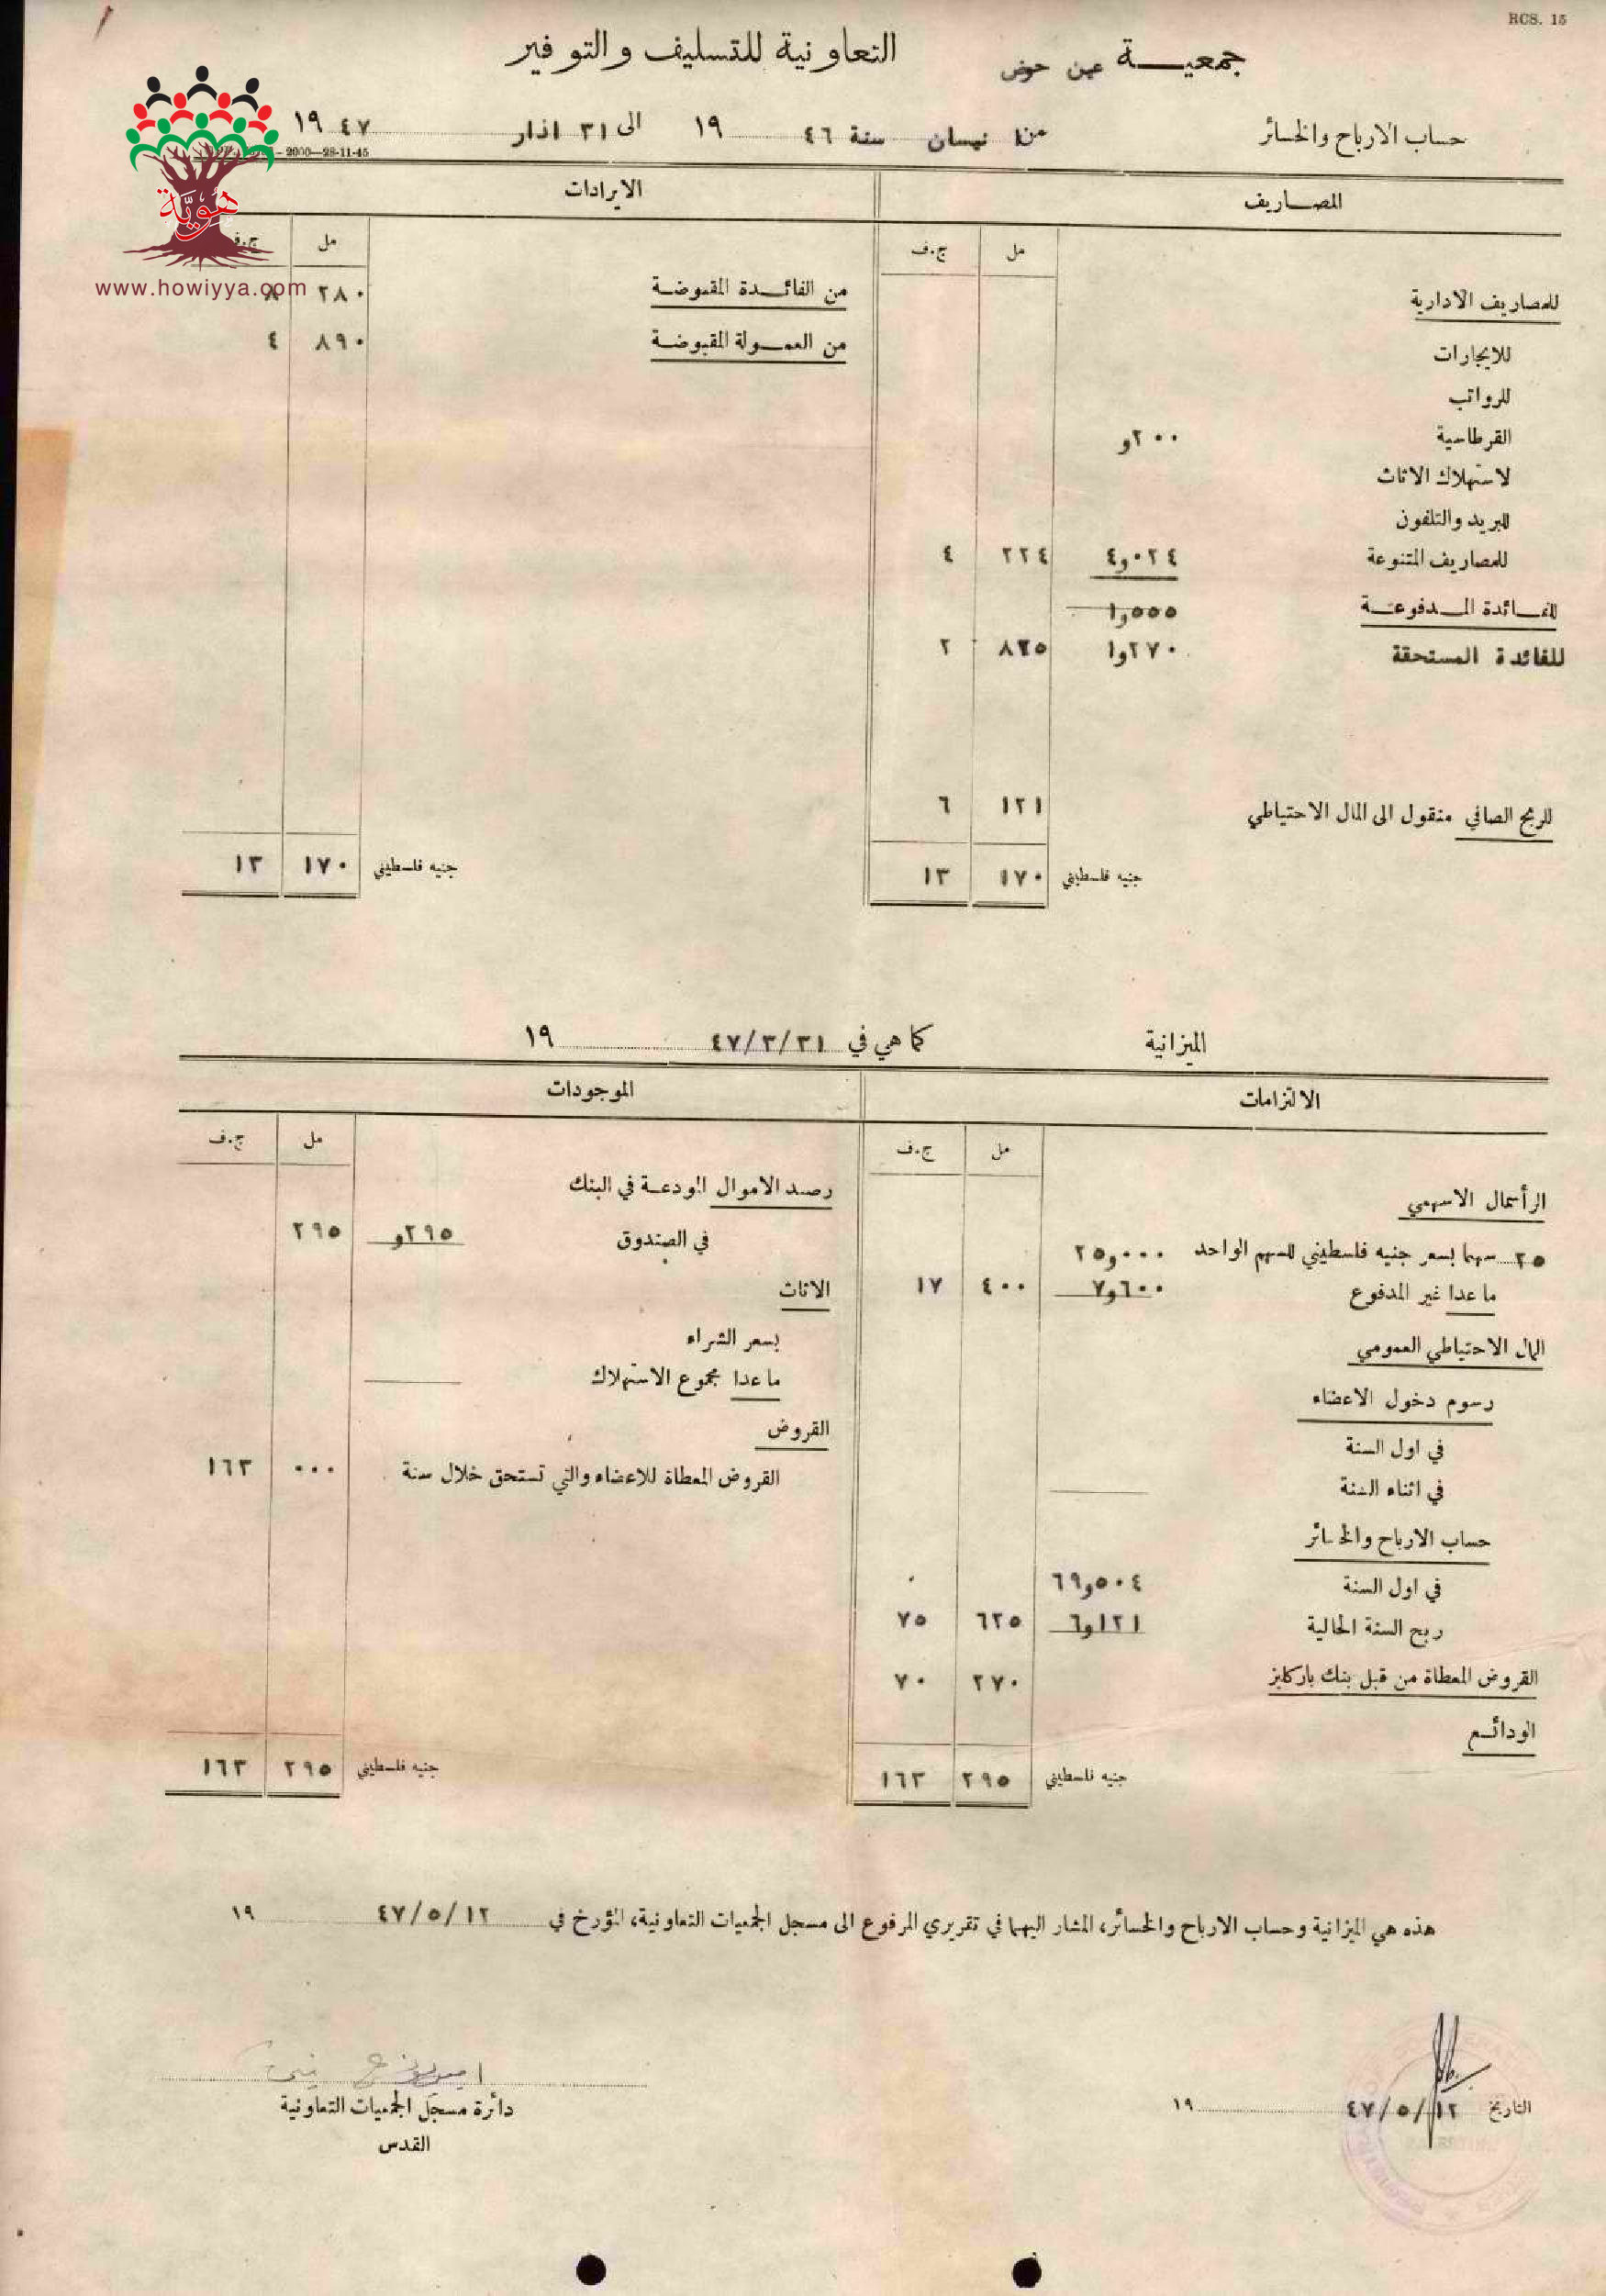 RCS. 15
جمعيــــة عين حوض التعاونية للتسليف والتوفير
حساب الارباح والخسائر من ١ نيسان سنة ٤٦ ١٩ الى ٣١ اذار ٤٧ ١٩
2000—28-11-45
هُويّة
www.howiyya.com
المصــاريف الايرادات
مل ج.ف مل ج.ف
للمصاريف الادارية من الفائــدة المقبوضــة ٢٨٠ ٨
للايجارات من العمــولة المقبوضــة ٨٩٠ ٤
للرواتب
القرطاسية ٢٠٠و
لاستهلاك الاثاث
للبريد والتلفون
للمصاريف المتنوعة ٠٢٤و٤ ٢٢٤ ٤
للفــائدة المــدفوعــة ٥٥٥و١
للفائدة المستحقة ٢٧٠و١ ٨٢٥ ٢
للربح الصافي منقول الى المال الاحتياطي ١٢١ ٦
جنيه فلسطيني ١٧٠ ١٣ جنيه فلسطيني ١٧٠ ١٣
الميزانية كما هي في ٤٧/٣/٣١ ١٩
الالتزامات الموجودات
مل ج.ف مل ج.ف
الرأسمال الاسهمي رصــد الاموال المودعــة في البنك
٢٥ سهما بسعر جنيه فلسطيني للسهم الواحد ٠٠٠و٢٥ في الصندوق ٢٩٥و ٢٩٥
ما عدا غير المدفوع ٦٠٠و٧ ٤٠٠ ١٧ الاثاث
المال الاحتياطي العمومي بسعر الشراء
رسوم دخول الاعضاء ما عدا مجموع الاستهلاك
في اول السنة القروض
في اثناء السنة القروض المعطاة للاعضاء والتي تستحق خلال سنة ٠٠٠ ١٦٣
حساب الارباح والخسائر
في اول السنة ٥٠٤و٦٩
ربح السنة الحالية ١٢١و٦ ٦٢٥ ٧٥
القروض المعطاة من قبل بنك باركليز ٢٧٠ ٧٠
الودائــع
جنيه فلسطيني ٢٩٥ ١٦٣ جنيه فلسطيني ٢٩٥ ١٦٣
هذه هي الميزانية وحساب الارباح والخسائر، المشار اليهما في تقريري المرفوع الى مسجل الجمعيات التعاونية، المؤرخ في ٤٧/٥/١٢ ١٩
دائرة مسجل الجمعيات التعاونية
القدس
التاريخ ٤٧/٥/١٢ ١٩